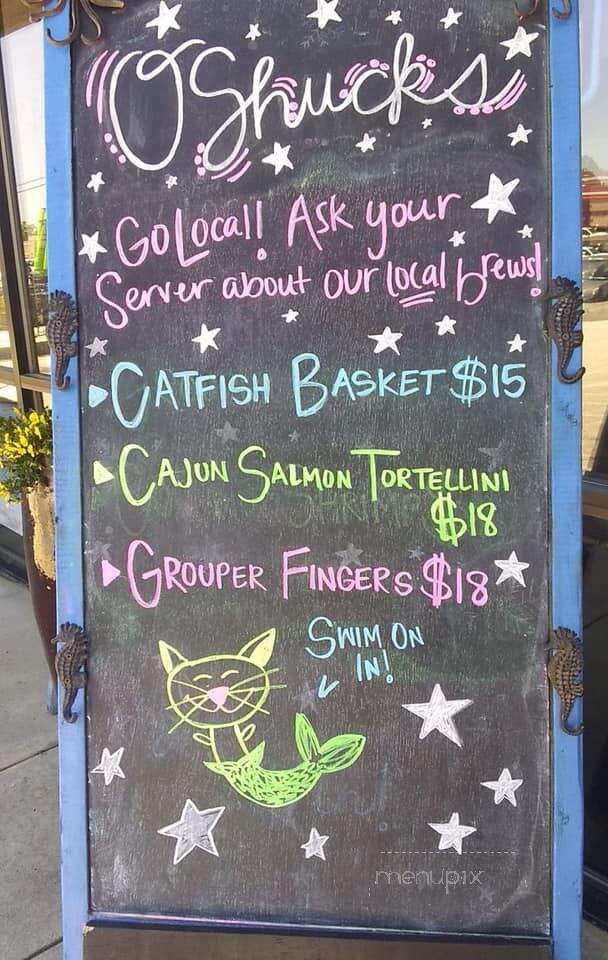 O'Shucks
Go Local! Ask your
Server about our local brews!
CATFISH BASKET $15
CAJUN SALMON TORTELLINI
SHRIMP
$18
GROUPER FINGERS $18
SWIM ON
IN!
menupix